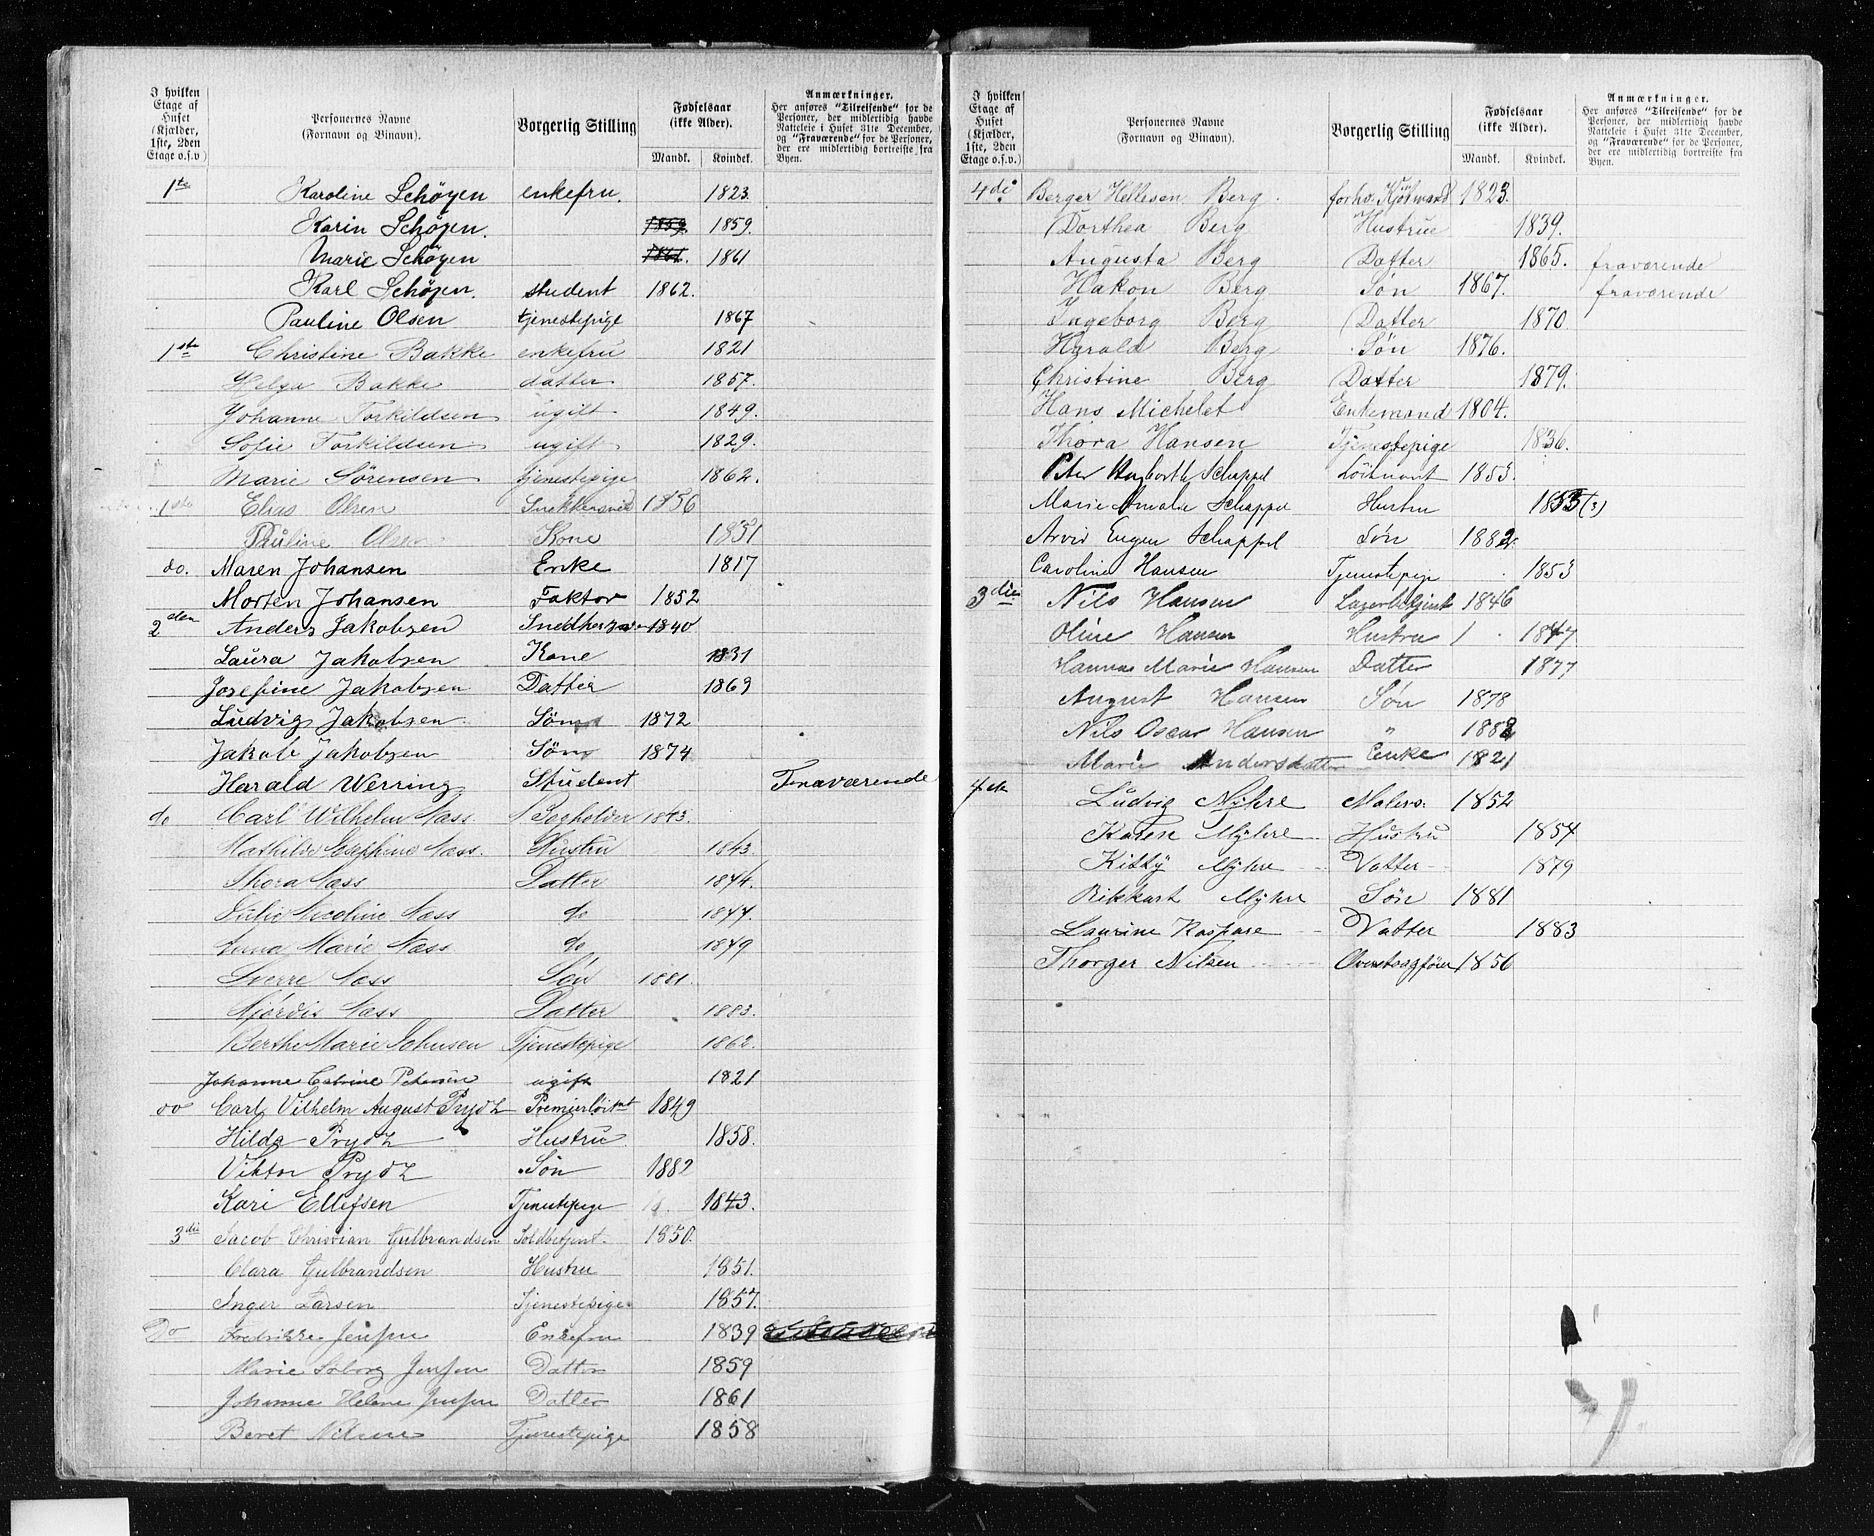 I hvilken Etage af Huset (Kjælder, 1ste, 2den Etage o.s.v.) Personernes Navne (Fornavn og Binavn). Borgerlig Stilling Fødselsaar (ikke Alder). Mandk. Kvindek. Anmærkninger. Her anføres "Tilreisende" for de Personer, der midlertidig havde Natteleie i Huset 31te December, og "Fraværende" for de Personer, der ere midlertidig bortreiste fra Byen.
1ste Karoline Schøyen enkefru. 1823.
Karin Schøyen. 1859 1859.
Marie Schøyen 1861. 1861
Karl Schøyen. student 1862.
Pauline Olsen tjenestepige 1867
1ste Christine Bakke enkefru 1821
Helga Bakke datter 1857.
Johanne Torkildsen ugift 1849.
Sofie Torkildsen ugift 1829.
Marie Sørensen tjenestepige 1862.
1ste Elias Olsen 1856
Pauline Olsen Kone 1831
do. Maren Johansen Enke 1817
Morten Johansen Faktor 1852
2den Anders Jakobsen 1840
Laura Jakobsen Kone 1831
Josefine Jakobsen Datter 1869
Ludvig Jakobsen Søn 1872
Jakob Jakobsen Søn 1874
Harald Werring Student Fraværende
do Carl Wilhelm Næss Bogholder 1843.
Mathilde Josephine Næss. Hustru 1843.
Thora Næss Datter 1874.
Julie Nicoline Næss do 1877.
Anna Marie Næss do 1879
Sverre Næss Søn 1881.
Hjørdis Næss Datter 1883.
Berthe Marie Johnsen Tjenestepige 1862.
Johanne Catrine Petersen ugift 1821
do Carl Vilhelm August Prydz Premierløitnt 1849
Hilda Prydz Hustru 1858.
Viktor Prydz Søn 1882
Kari Ellefsen Tjenestepige 1843.
3die Jacob Christian Gulbrandsen Toldbetjent. 1850.
Clara Gulbrandsen Hustru 1851.
Inger Larsen Tjenestepige 1857.
Do Fredrikke Jensen Enkefru 1839
Marie Solborg Jensen Datter 1859
Johanne Helene Jensen Datter 1861
Beret Nilsen Tjenestepige 1858
I hvilken Etage af Huset (Kjælder, 1ste, 2den Etage o.s.v.) Personernes Navne (Fornavn og Binavn). Borgerlig Stilling Fødselsaar (ikke Alder). Mandk. Kvindek. Anmærkninger. Her anføres "Tilreisende" for de Personer, der midlertidig havde Natteleie i Huset 31te December, og "Fraværende" for de Personer, der ere midlertidig bortreiste fra Byen.
4de Berger Hellesen Berg. forhv. Kjøbmand 1823.
Dorthea Berg Hustrue 1839.
Augusta Berg Datter 1865. fraværende
Hakon Berg Søn 1867. fraværende
Ingeborg Berg Datter 1870
Harald Berg Søn 1876.
Christine Berg Datter 1879.
Hans Michelet Enkemand 1804.
Thora Hansen Tjenestepige 1836.
Peter Schappel Løitnant 1853.
Marie Amalie Schappel Hustru 1853 (3)
Arvid Eugen Schappel Søn 1882.
Caroline Hansen Tjenestepige 1853
3die Nils Hansen Lagerbetjent 1846
Oline Hansen Hustru 1 1847
Hanna Marie Hansen Datter 1877
August Hansen Søn 1878
Nils Oscar Hansen " 1882
Marie Andersdatter Enke 1821
4de Ludvig Myhre Malers. 1852
Karen Myhre Hustru 1854
Kitty Myhre Datter 1879
Rikkart Myhre Søn 1881
Laurine Kaspare Datter 1883
Thorger Nilsen 1856